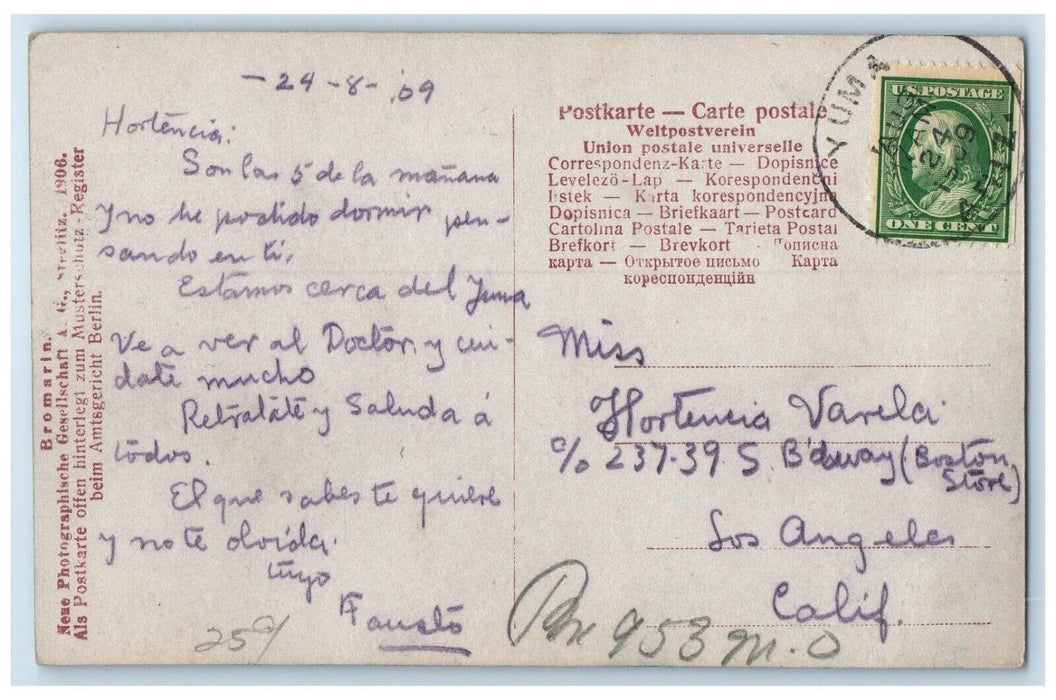 -24-8-,09
Hortencia:
Son las 5 de la mañana
y no he podido dormir pen-
sando en ti.
Estamos cerca del Yuma
Ve a ver al Doctor, y cui-
date mucho
Retratate y Saluda á
todos.
El que sabes te quiere
y no te olvida.
tuyo
Fausto
25¢/
Bromarin.
Neue Photographische Gesellschaft A. G., Steglitz. 1906.
Als Postkarte offen hinterlegt zum Musterschutz-Register
beim Amtsgericht Berlin.
Postkarte — Carte postale
Weltpostverein
Union postale universelle
Correspondenz-Karte — Dopisnice
Levelező-Lap — Korespondenční
listek — Karta korespondencyjna
Dopisnica — Briefkaart — Postcard
Cartolina Postale — Tarjeta Postal
Brefkort — Brevkort — Дописна
карта — Открытое письмо Карта
кореспонденційн
YUMA
ARIZ.
AUG
24
1909
U.S. POSTAGE
ONE CENT
Miss
Hortencia Varela
c/o 237-39 S. B'dway (Boston
Store)
Los Angeles
Calif.
953 M.O